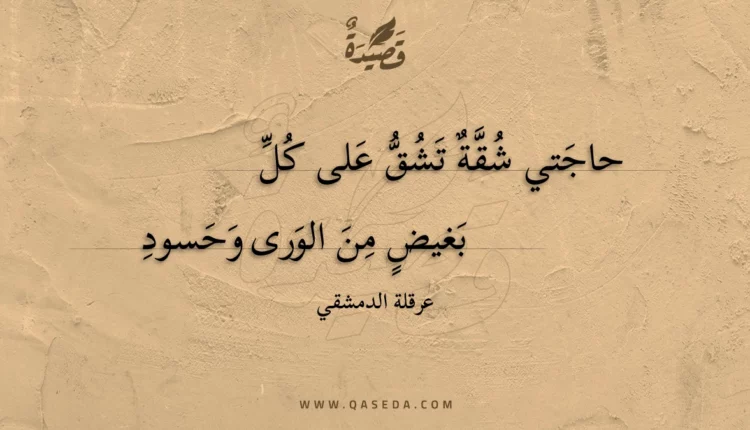 قَصِيْدَةٌ
حاجَتي شُقَّةٌ تَشُقُّ عَلى كُلِّ
بَغيضٍ مِنَ الوَرى وَحَسودِ
عرقلة الدمشقي
WWW.QASEDA.COM